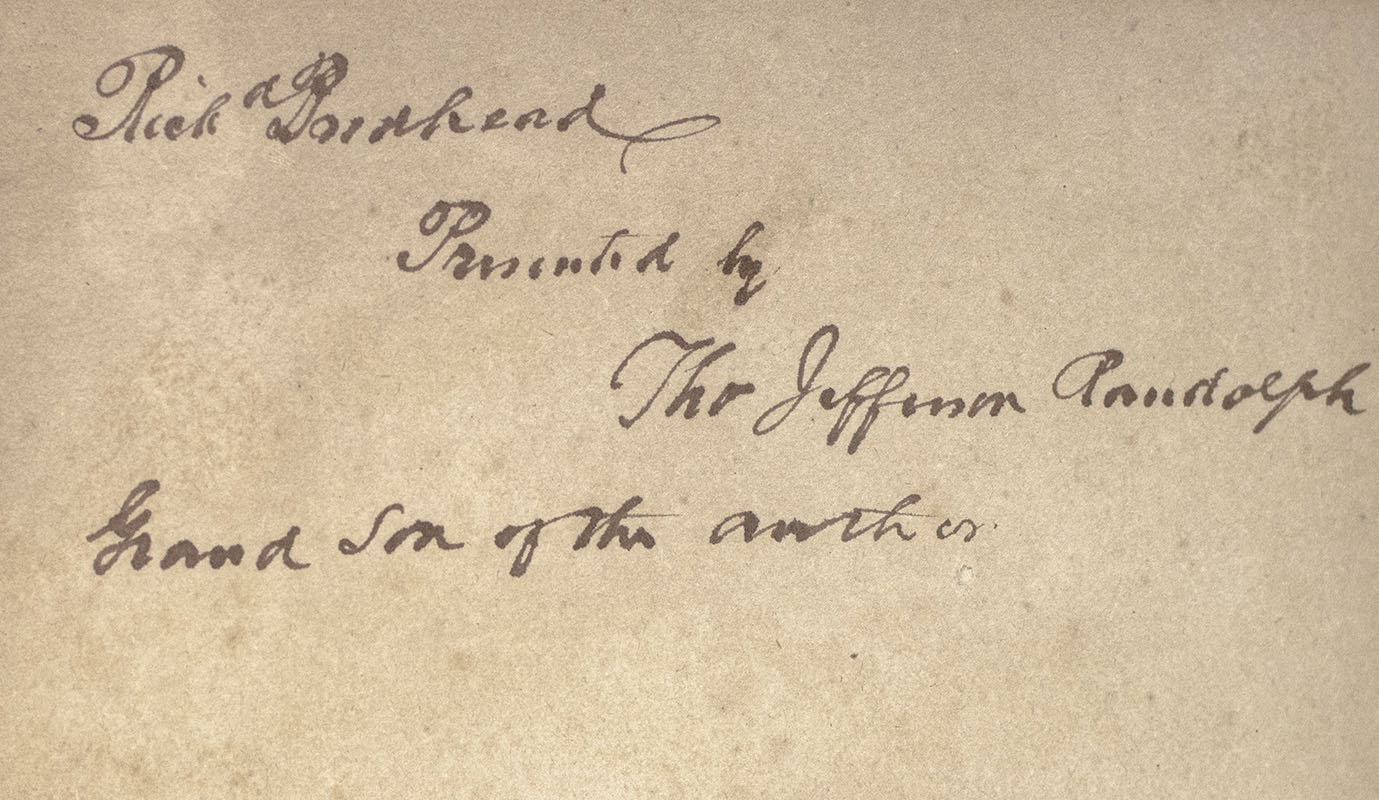 Rich^d Brodhead
Presented by
Tho Jefferson Randolph
Grand Son of the author